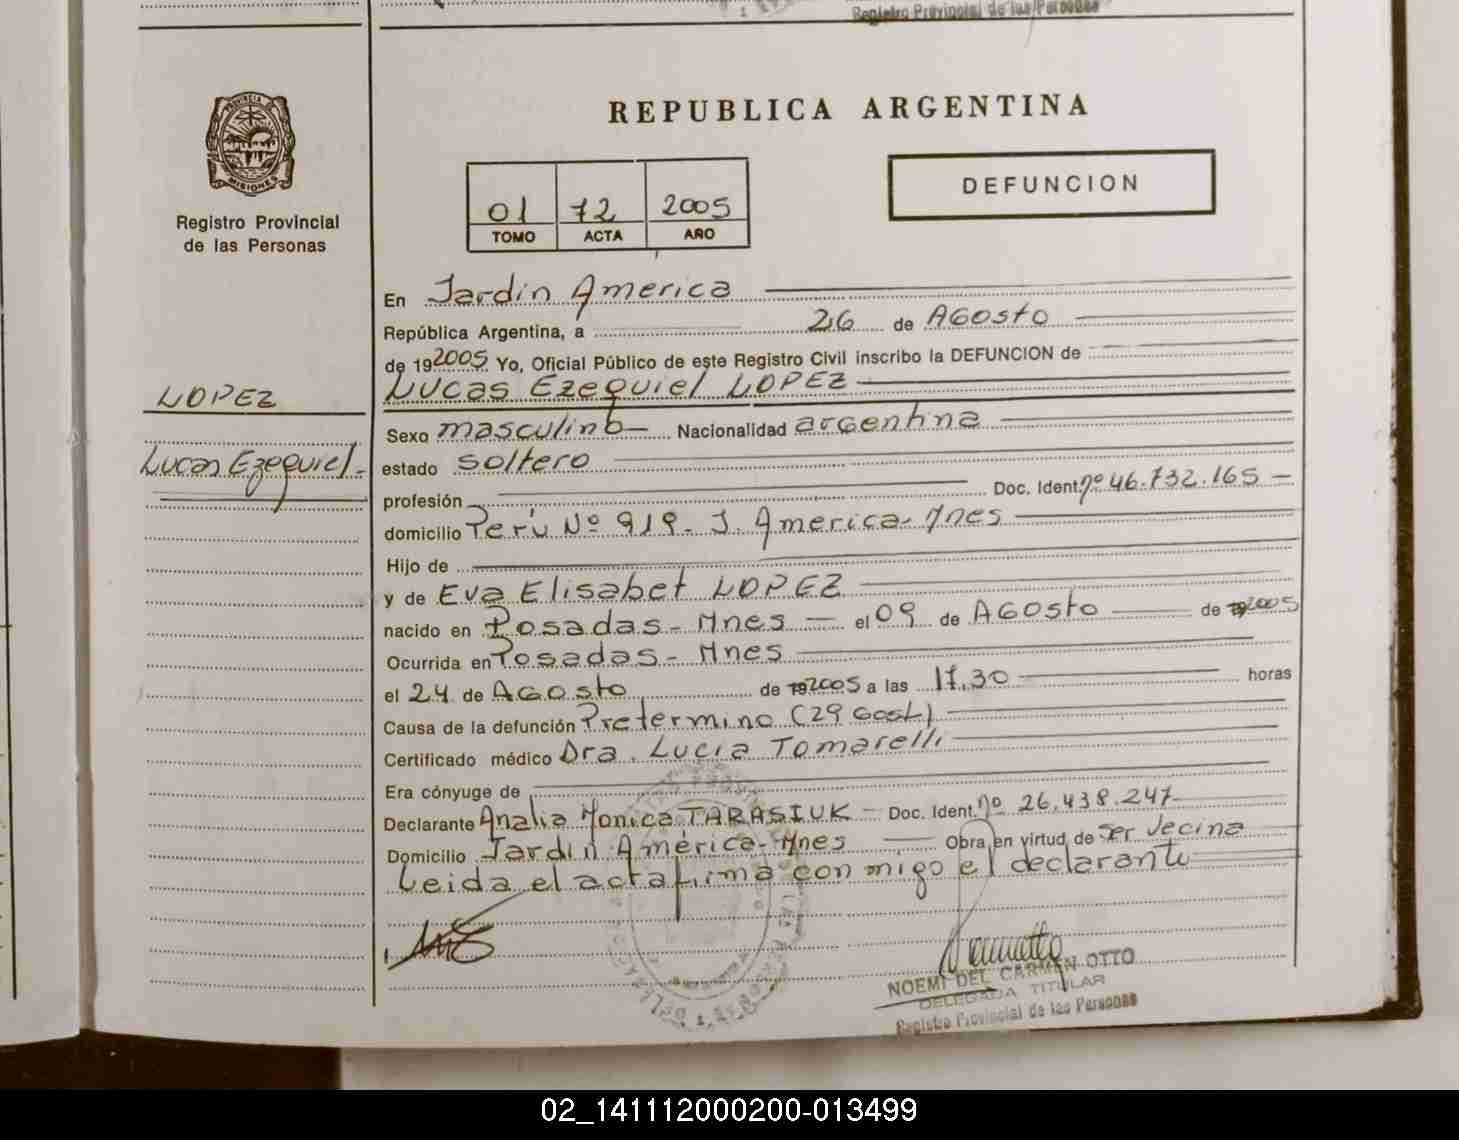 Registro Provincial de las Personas
PROVINCIA DE
MISIONES
Registro Provincial
de las Personas
REPUBLICA ARGENTINA
01 72 2005
TOMO ACTA AÑO
DEFUNCION
En Jardin America
República Argentina, a 26 de Agosto
de 192005 Yo, Oficial Público de este Registro Civil inscribo la DEFUNCION de
Lucas Ezequiel LOPEZ
LOPEZ
Lucas Ezequiel.-
Sexo masculino Nacionalidad argentina
estado soltero
profesión Doc. Ident. nº 46.732.165
domicilio Perú Nº 919. J. America. Mnes
Hijo de
y de Eva Elisabet LOPEZ
nacido en Posadas - Mnes el 09 de Agosto de 2005
Ocurrida en Posadas - Mnes
el 24 de Agosto de 2005 a las 17,30 horas
Causa de la defunción Pretermino (29 Gest.)
Certificado médico Dra. Lucia Tomarelli
Era cónyuge de
Declarante Analia Monica TARASIUK Doc. Ident. nº 26.438.247
Domicilio Jardin America - Mnes Obra en virtud de ser Vecina
Leida el acta firma con migo el declarante
NOEMI DEL CARMEN OTTO
DELEGADA TITULAR
Registro Provincial de las Personas
02_141112000200-013499